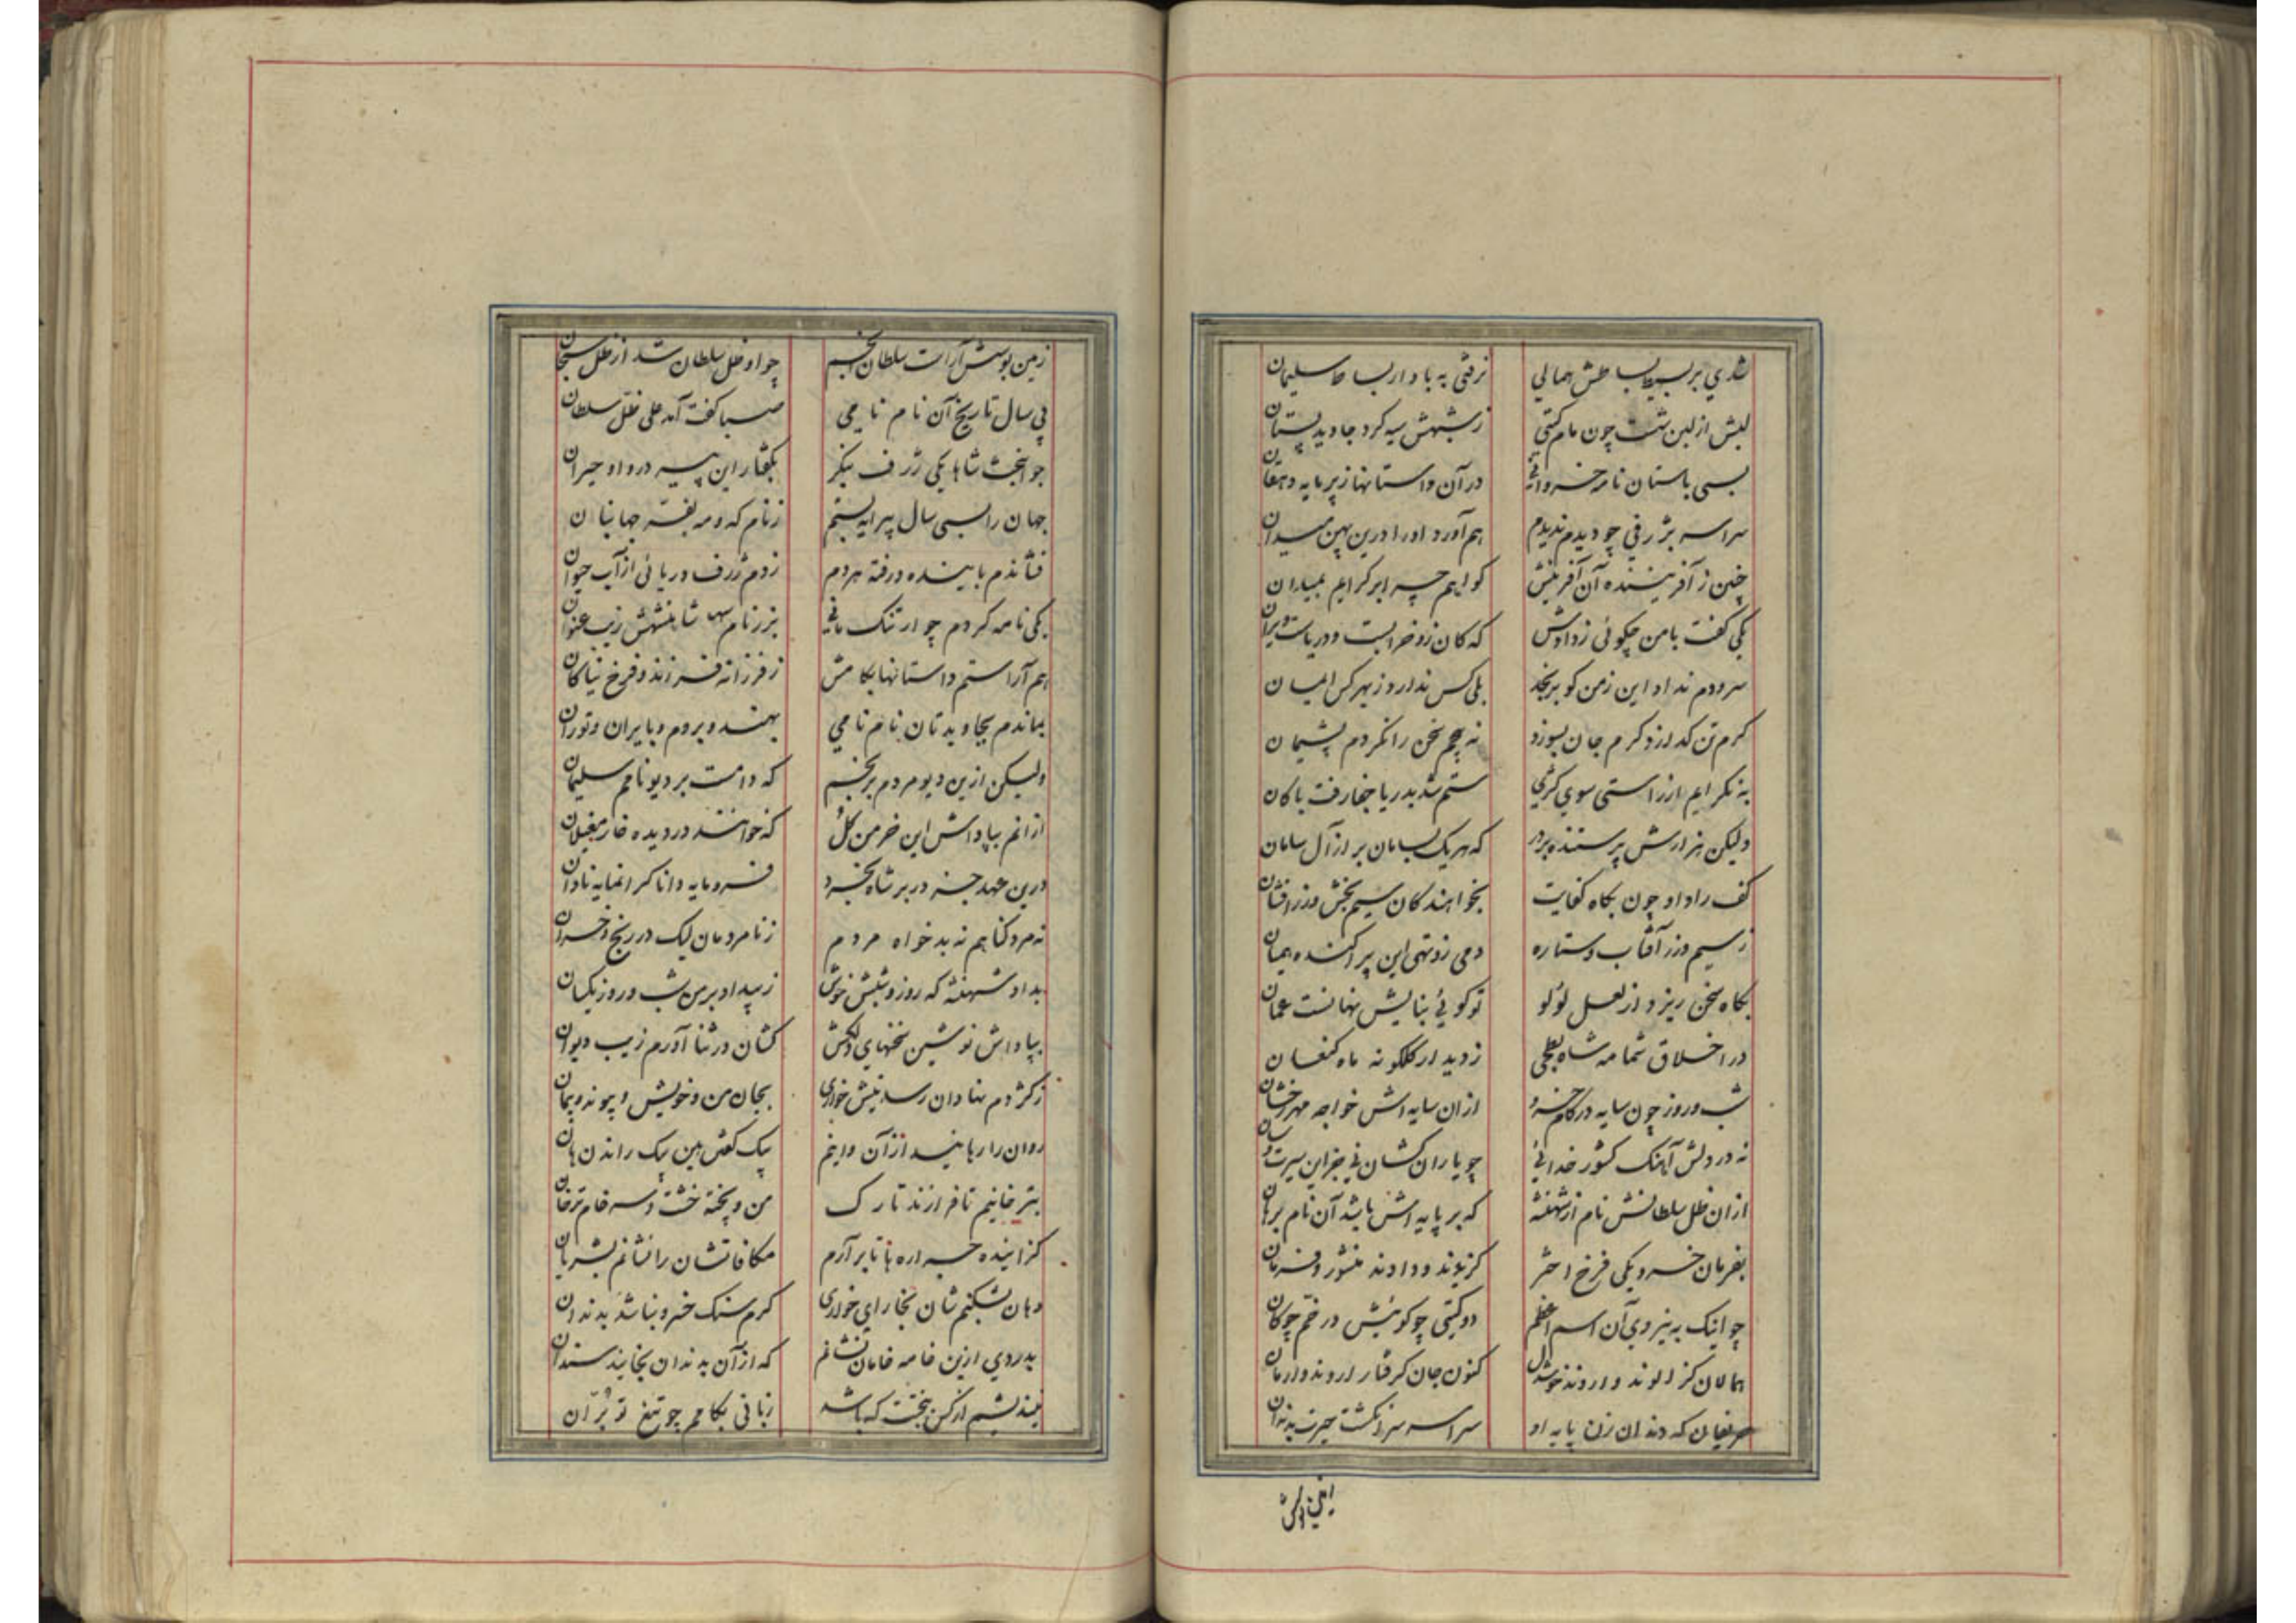 نثاری بر بسیط بساطش همالی نرفتی به باد ار بساط سلیمان
لبش از لبن شست چون مام گیتی ز شبهش سیه کرد جاوید پستان
بسی باستان نامه خسروانی در آن داستانها ز پرمایه دهقان
سراسر بژرفی چو دیدم ندیدم هم آورد او را درین پهن میدان
چنین ز آفریننده آن آفرینش کو ایم چه ابر کرایم بمیاران
یکی کفت با من چکوئی ز دادش که کان زو خرابست و دریاست ویران
سرودم نداد این زمن کو برنجد بلی کس ندارد ز بهر کس
کرم تن کدازد کرم جان بسوزد نه پیچم سخن را نکردم پشیمان
به نکرایم از راستی سوی کژی ستم شد بدریا جفا رفت با کان
ولیکن هزارش پرستنده بر در که هر یک بسامان بر از آل سامان
کف راد او چون بکاه کفایت بخواهندکان سیم بخش و زر افشان
ز سیم و زر آفتاب و ستاره دمی زو تهی این پراکنده همیان
بکاه سخن ریزد از لعل لؤلو تو کوئی بنایش نهانست عمان
در اخلاق شمامه شاه بطحی ز دیدار کلکونه ماه کنعان
شب و روز چون سایه در کام خسرو از آن سایه اش خواجه مهر رخشان
نه در دلش آهنک کشور خدائی چو یاران کشان نی جز این سیرت و سان
از آن ظل سلطانش نام از شهنشه که بر پایه اش باشد آن نام برهان
بفرمان خسرو یکی فرخ اختر کزیدند و دادند منشور و فرمان
چو اینک به نیروی آن اسم اعظم دو کیتی چو کویش در خم چوکان
همالان کز الوند و اروند خوشدل کنون جان کرفتار اروند و ارمان
حریفان که دندان زن پایه او سراسر سر انکشت حیرت بدندان
زمین بوسش آراست سلطان انجم چو او ظل سلطان شد از ظل سبحان
پی سال تاریخ آن نام نامی صبا کفت آمد علی ظل سلطان
جوانبخت شاها یکی ژرف بنکر بکفتار این پیر در داد حیران
جهان را بسی سال پیرایه بستم ز نام که و مه بفر جهانبان
فشاندم بآینده و رفته هر دم ز دم ژرف دریائی از آب حیوان
یکی نامه کردم چو ارتنک مانی بزر نام شاهنشهش زیب عنوان
هم آراستم داستانها بکامش ز فرزانه فرزند و فرخ نیاکان
بماندم بجاویدتان نام نامی بهند و بروم و بایران و توران
ولیکن ازین دیو مردم برنجم که دامست بر دیو نامم سلیمان
از انم بپاداش این خرمن کل که خواهند در دیده خار مغیلان
درین عهد جز در بر شاه بخرد فرومایه دانا کرانمایه نادان
نه مرد کناهم نه بدخواه مردم ز نامردمان لیک در رنج و خسران
بداد شهنشه که روز و شبش خوش ز بیداد بر من شب و روز یکسان
بپاداش نوشین سخنهای دلکش کشان در ثنا آورم زیب دیوان
ز کژدم نهادان رسد نیش خواری بجان من و خویش و پیوند و پیمان
روان را رهانید از آن و اینم بیک کفتن این بیک راندن آن
بتر خانیم تا فرازند تارک من و پخته خشت و سر خام ترخان
کزاینده جراره ها تا بر آرم مکافاتشان را نشانم بشریان
دهان بشکنم شان بخارای خواری کرم سنک خسرو نباشد بدندان
بدردی ازین خامه خامان نشانم که از آن بدندان بخایند سندان
نیندیشم ار کین بختت که باشد زبانی بکامم چو تیغ تو بران